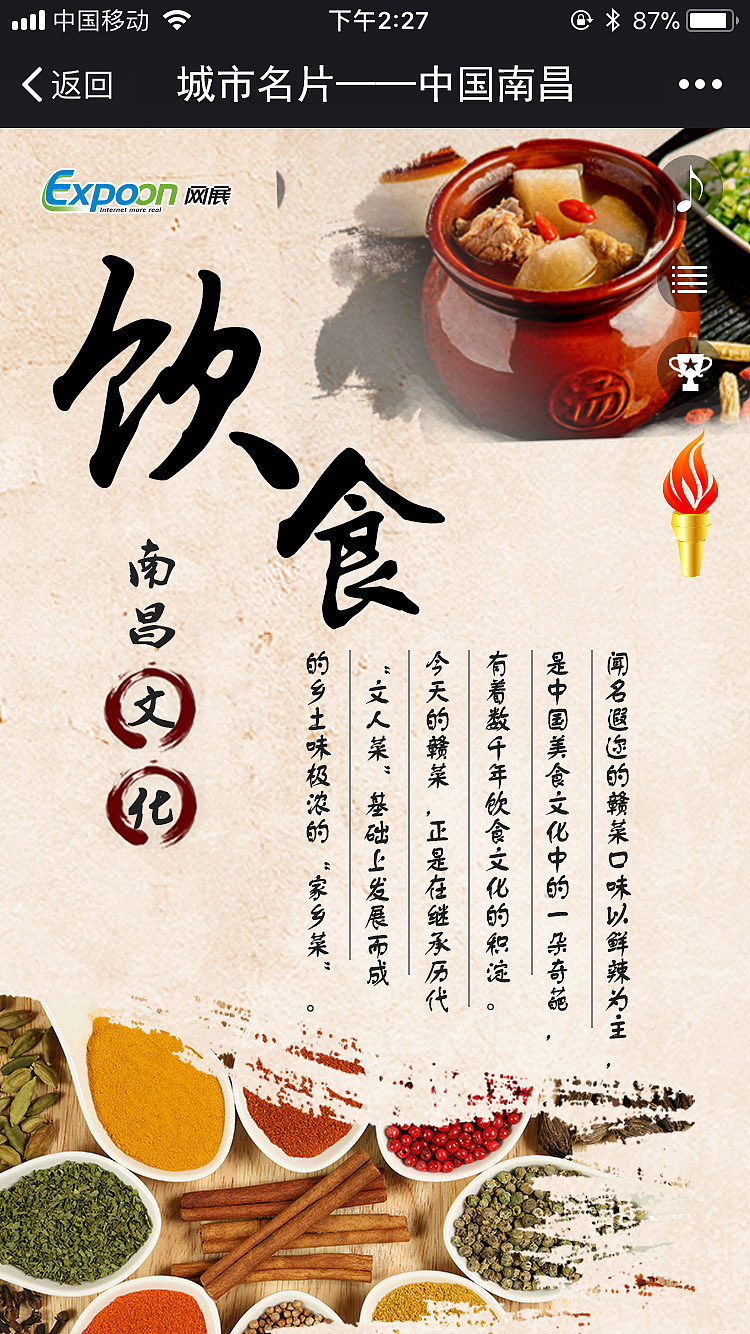 中国移动
下午2:27
87%
返回
城市名片——中国南昌
Expoon 网展
Internet more real
饮食
南昌文化
闻名遐迩的赣菜口味以鲜辣为主,
是中国美食文化中的一朵奇葩,
有着数千年饮食文化的积淀。
今天的赣菜,正是在继承历代
“文人菜”基础上发展而成
的乡土味极浓的“家乡菜”。